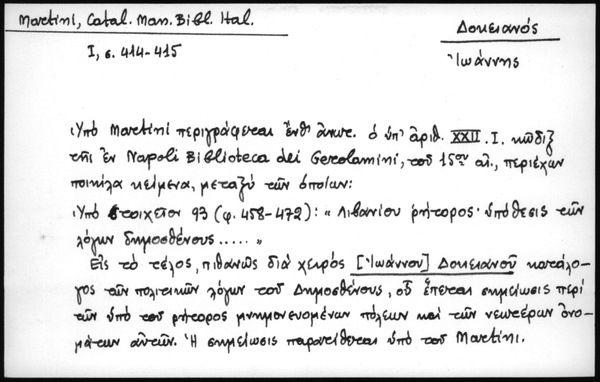 Martini, Catal. Man. Bibl. Ital.
I, σ. 414-415
Δοκειανός
Ἰωάννης
Ὑπό Martini περιγράφεται ἔνθ' ἀνωτ. ὁ ὑπ' ἀριθ. XXII. I. κῶδιξ
τῆς ἐν Napoli Biblioteca dei Gerolamini, τοῦ 15ου αἰ., περιέχων
ποικίλα κείμενα, μεταξύ τῶν ὁποίων:
Ὑπό στοιχεῖον 93 (φ. 458-472): "Λιβανίου ῥήτορος· ὑπόθεσις τῶν
λόγων δημοσθένους ....."
Εἰς τό τέλος, πιθανῶς διά χειρός [Ἰωάννου] Δοκειανοῦ κατάλο-
γος τῶν πολιτικῶν λόγων τοῦ Δημοσθένους, οὗ ἕπεται σημείωσις περί
τῶν ὑπό τοῦ ῥήτορος μνημονευομένων πόλεων καί τῶν νεωτέρων ὀνο-
μάτων αὐτῶν. Ἡ σημείωσις παρατίθεται ὑπό τοῦ Martini.